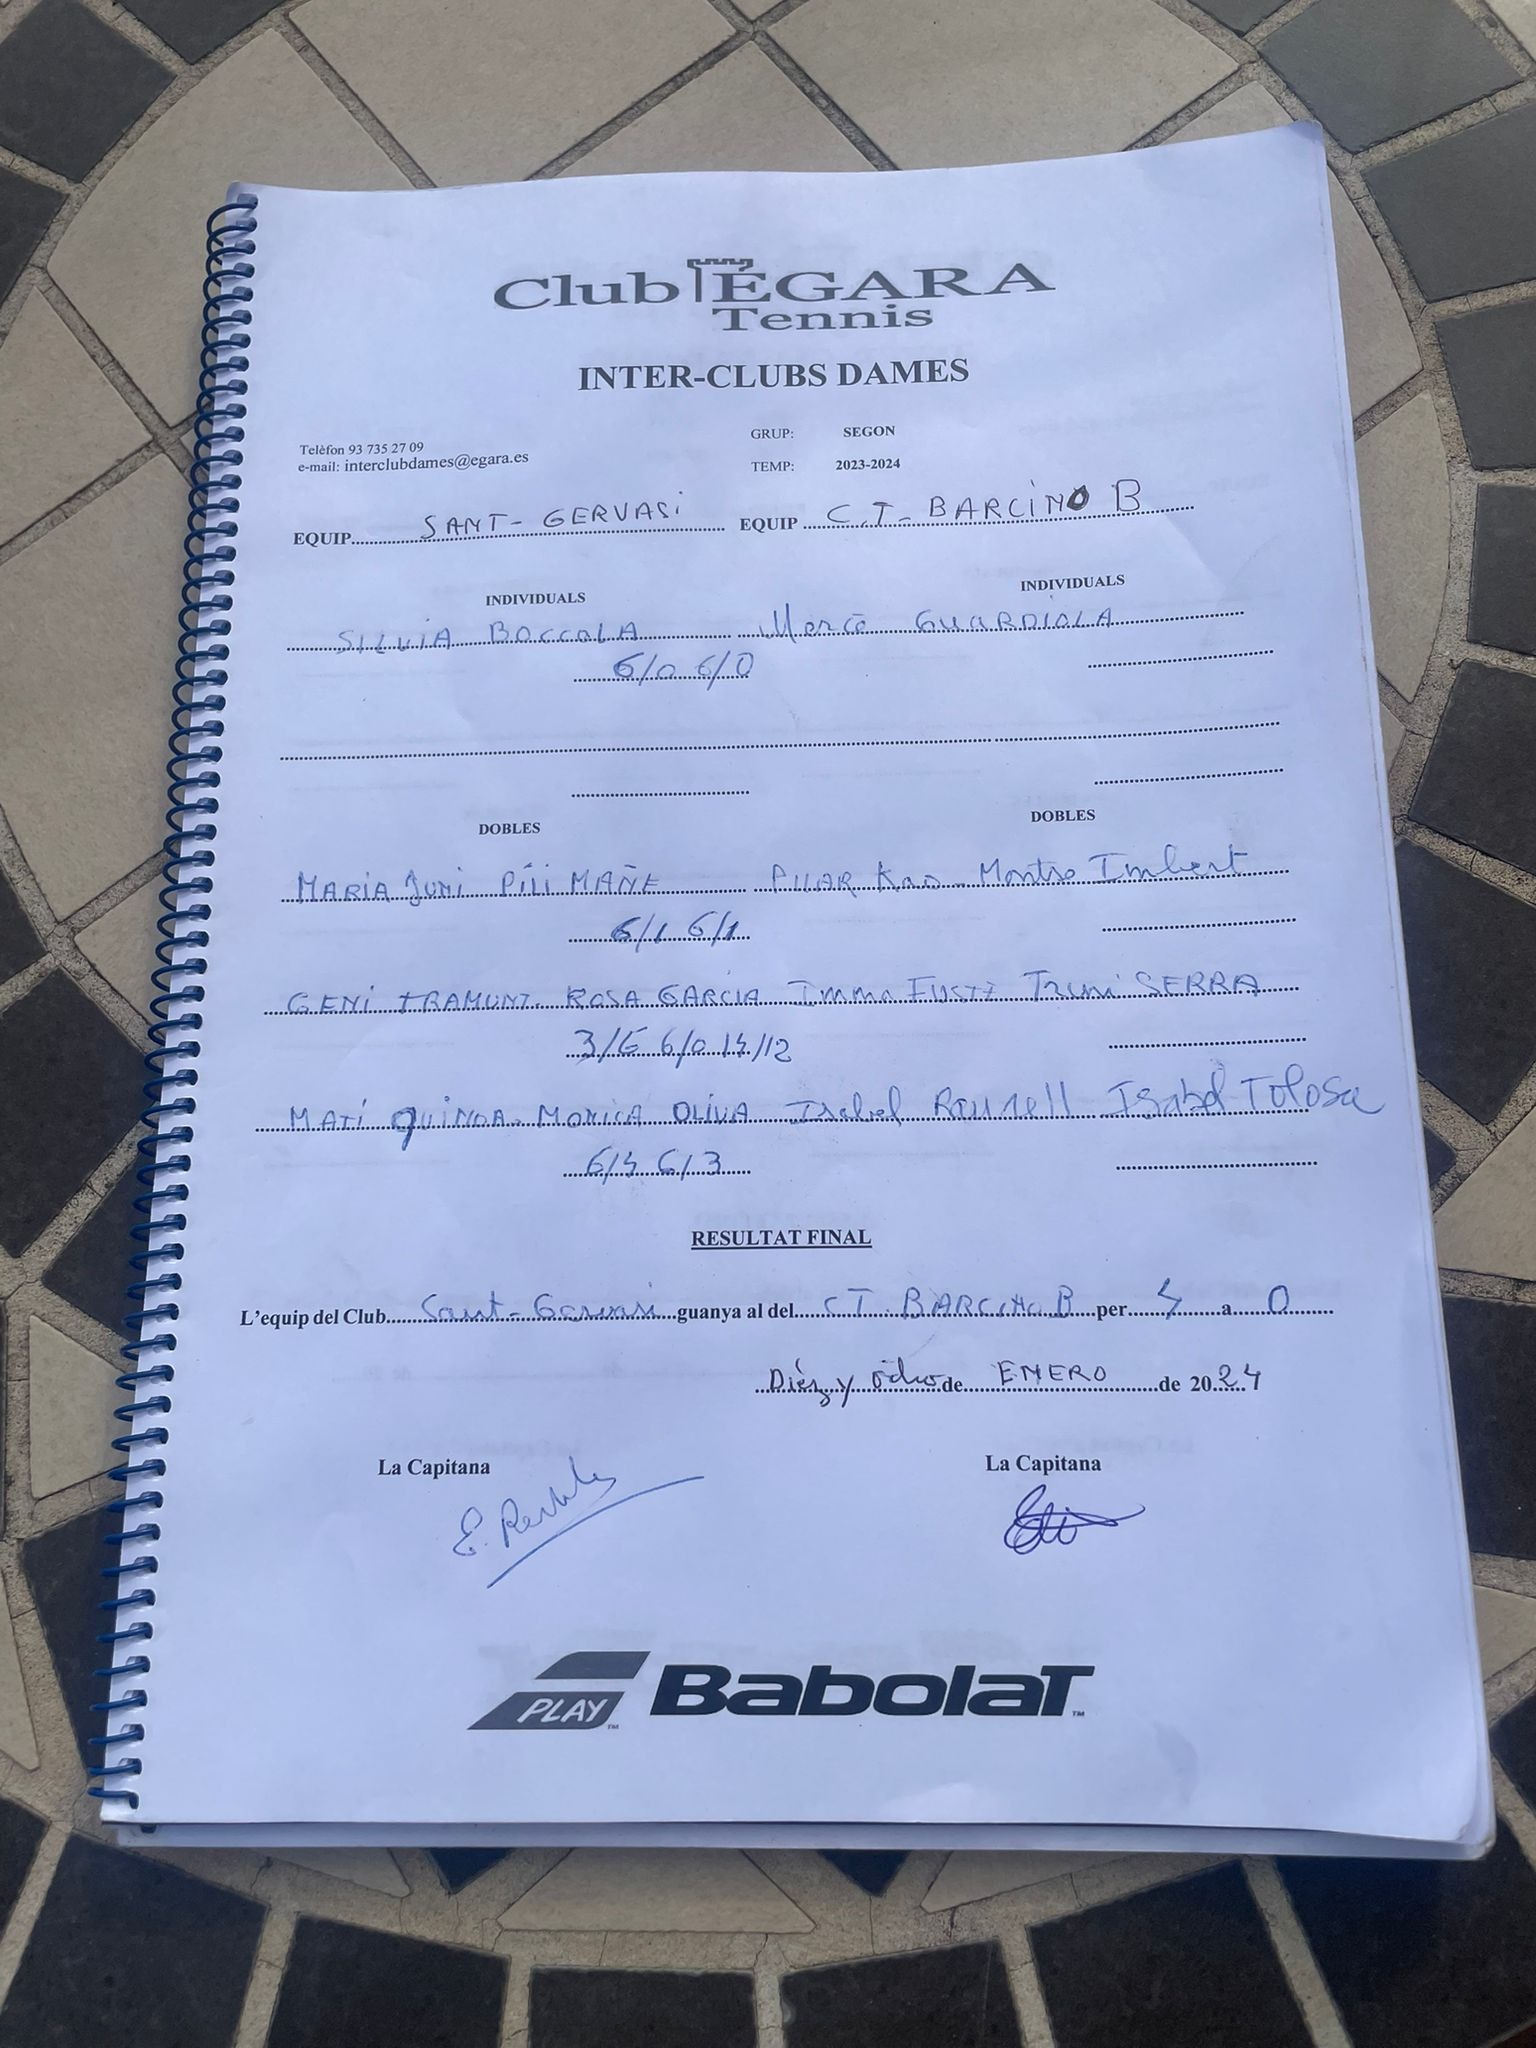 Club ÉGARA
Tennis
INTER-CLUBS DAMES
Telèfon 93 735 27 09
e-mail: interclubdames@egara.es
GRUP: SEGON
TEMP: 2023-2024
EQUIP SANT-GERVASi EQUIP C.T-BARCINO B
INDIVIDUALS INDIVIDUALS
SILVIA BOCCOLA Mercè GUARDIOLA
6/0 6/0
DOBLES DOBLES
MARIA JUNI Pili MAÑE PILAR Montse Imbert
6/1 6/1
GENI TRAMUNT- ROSA GARCIA Imma FUSTÉ Truni SERRA
3/6 6/0 14/12
MATI QUINOA- MONICA OLIVA Isabel Isabel TOLOSA
6/4 6/3
RESULTAT FINAL
L'equip del Club Sant-Gervasi guanya al del CT BARCINO B per 4 a 0
Diez y ocho de ENERO de 2024
La Capitana La Capitana
PLAY™ BabolaT™